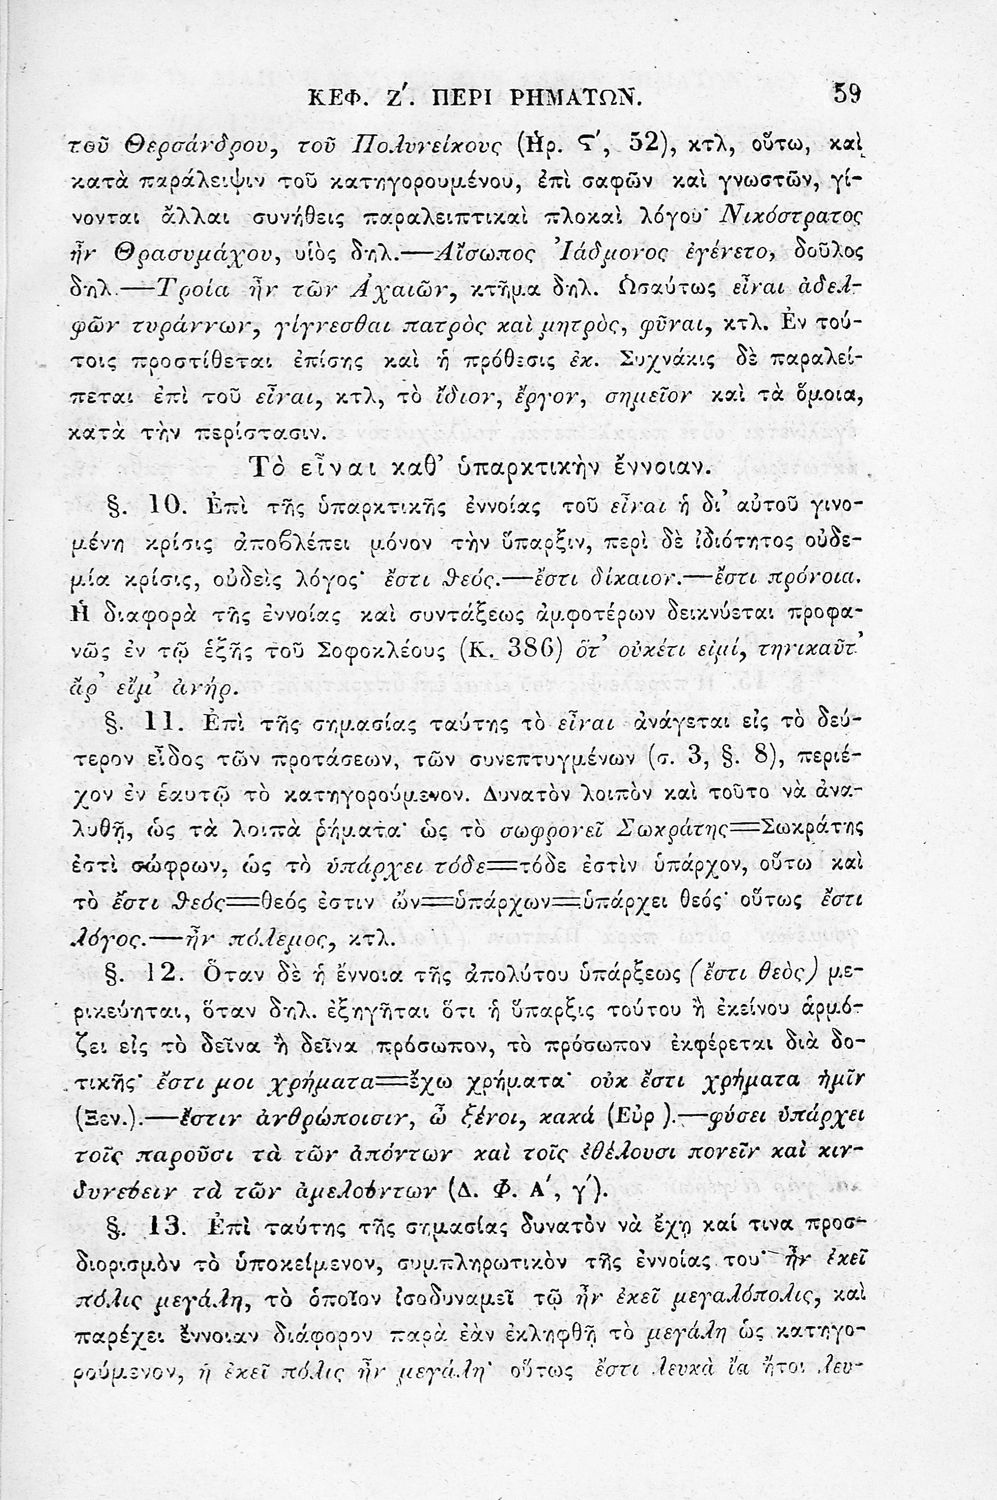 ΚΕΦ. Ζ΄. ΠΕΡΙ ΡΗΜΑΤΩΝ. 59
τοῦ Θερσάνδρου, τοῦ Πολυνείκους (Ἡρ. Ϛ΄, 52), κτλ, οὕτω, καὶ
κατὰ παράλειψιν τοῦ κατηγορουμένου, ἐπὶ σαφῶν καὶ γνωστῶν, γί-
νονται ἄλλαι συνήθεις παραλειπτικαὶ πλοκαὶ λόγου· Νικόστρατος
ἦν Θρασυμάχου, υἱὸς δηλ.—Αἴσωπος Ἰάδμονος ἐγένετο, δοῦλος
δηλ.—Τροία ἦν τῶν Ἀχαιῶν, κτῆμα δηλ. Ὡσαύτως εἶναι ἀδελ-
φῶν τυράννων, γίγνεσθαι πατρὸς καὶ μητρὸς, φῦναι, κτλ. Ἐν τού-
τοις προστίθεται ἐπίσης καὶ ἡ πρόθεσις ἐκ. Συχνάκις δὲ παραλεί-
πεται ἐπὶ τοῦ εἶναι, κτλ, τὸ ἴδιον, ἔργον, σημεῖον καὶ τὰ ὅμοια,
κατὰ τὴν περίστασιν.
Τὸ εἶναι καθ’ ὑπαρκτικὴν ἔννοιαν.
§. 10. Ἐπὶ τῆς ὑπαρκτικῆς ἐννοίας τοῦ εἶναι ἡ δι’ αὐτοῦ γινο-
μένη κρίσις ἀποβλέπει μόνον τὴν ὕπαρξιν, περὶ δὲ ἰδιότητος οὐδε-
μία κρίσις, οὐδεὶς λόγος· ἔστι ϑεός.—ἔστι δίκαιον.—ἔστι πρόνοια.
Ἡ διαφορὰ τῆς ἐννοίας καὶ συντάξεως ἀμφοτέρων δεικνύεται προφα-
νῶς ἐν τῷ ἑξῆς τοῦ Σοφοκλέους (Κ. 386) ὅτ’ οὐκέτι εἰμί, τηνικαῦτ’
ἄρ’ εἴμ’ ἀνήρ.
§. 11. Ἐπὶ τῆς σημασίας ταύτης τὸ εἶναι ἀνάγεται εἰς τὸ δεύ-
τερον εἶδος τῶν προτάσεων, τῶν συνεπτυγμένων (σ. 3, §. 8), περιέ-
χον ἐν ἑαυτῷ τὸ κατηγορούμενον. Δυνατὸν λοιπὸν καὶ τοῦτο νὰ ἀνα-
λυθῇ, ὡς τὰ λοιπὰ ῥήματα· ὡς τὸ σωφρονεῖ Σωκράτης=Σωκράτης
ἐστὶ σώφρων, ὡς τὸ ὑπάρχει τόδε=τόδε ἐστὶν ὑπάρχον, οὕτω καὶ
τὸ ἔστι ϑεός=θεός ἐστιν ὤν=ὑπάρχων=ὑπάρχει θεός· οὕτως ἔστι
λόγος.—ἦν πόλεμος, κτλ.
§. 12. Ὅταν δὲ ἡ ἔννοια τῆς ἀπολύτου ὑπάρξεως (ἔστι θεὸς) με-
ρικεύηται, ὅταν δηλ. ἐξηγῆται ὅτι ἡ ὕπαρξις τούτου ἢ ἐκείνου ἁρμό-
ζει εἰς τὸ δεῖνα ἢ δεῖνα πρόσωπον, τὸ πρόσωπον ἐκφέρεται διὰ δο-
τικῆς· ἔστι μοι χρήματα=ἔχω χρήματα· οὐκ ἔστι χρήματα ἡμῖν
(Ξεν.).—ἔστιν ἀνθρώποισιν, ὦ ξένοι, κακά (Εὐρ).—φύσει ὑπάρχει
τοῖς παροῦσι τὰ τῶν ἀπόντων καὶ τοῖς ἐθέλουσι πονεῖν καὶ κιν-
δυνεύειν τὰ τῶν ἀμελούντων (Δ. Φ. Α΄, γ΄).
§. 13. Ἐπὶ ταύτης τῆς σημασίας δυνατὸν νὰ ἔχῃ καί τινα προσ-
διορισμὸν τὸ ὑποκείμενον, συμπληρωτικὸν τῆς ἐννοίας του· ἦν ἐκεῖ
πόλις μεγάλη, τὸ ὁποῖον ἰσοδυναμεῖ τῷ ἦν ἐκεῖ μεγαλόπολις, καὶ
παρέχει ἔννοιαν διάφορον παρὰ ἐὰν ἐκληφθῇ τὸ μεγάλη ὡς κατηγο-
ρούμενον, ἡ ἐκεῖ πόλις ἦν μεγάλη· οὕτως ἔστι λευκὰ ἴα ἤτοι λευ-